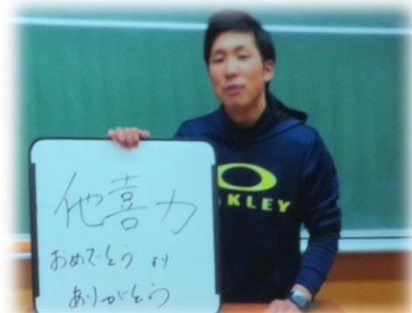 他喜力
おめでとう より
ありがとう
OAKLEY